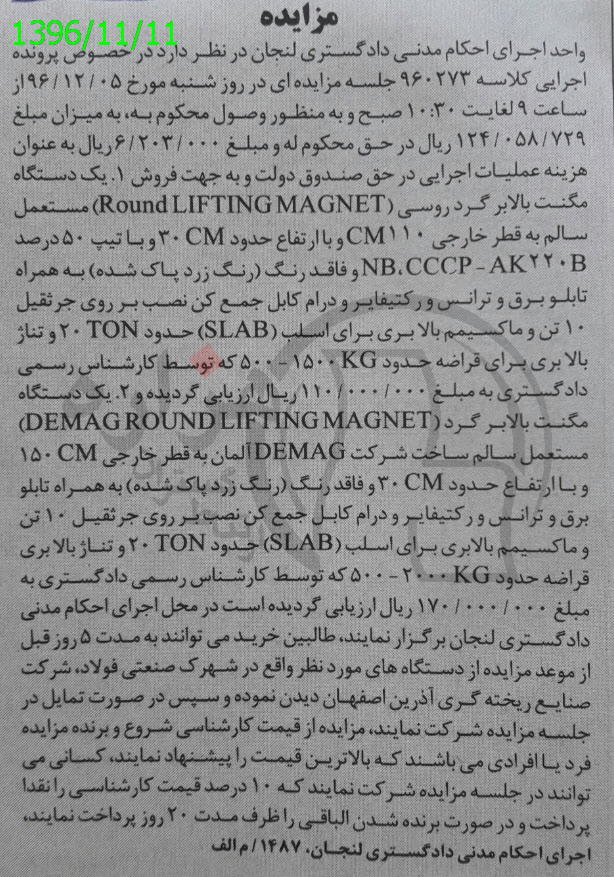 مزایده
1396/11/11
واحد اجرای احکام مدنی دادگستری لنجان در نظر دارد در خصوص پرونده
اجرایی کلاسه ۹۶۰۲۷۳ جلسه مزایده ای در روز شنبه مورخ ۹۶/۱۲/۰۵ از
ساعت ۹ لغایت ۱۰:۳۰ صبح و به منظور وصول محکوم به، به میزان مبلغ
۱۲۴/۰۵۸/۷۲۹ ریال در حق محکوم له و مبلغ ۶/۲۰۳/۰۰۰ ریال به عنوان
هزینه عملیات اجرایی در حق صندوق دولت و به جهت فروش ۱. یک دستگاه
مگنت بالابر گرد روسی (Round LIFTING MAGNET) مستعمل
سالم به قطر خارجی CM۱۱۰ و با ارتفاع حدود ۳۰ CM و با تیپ ۵۰ درصد
NB،CCCP – AK۲۲۰B و فاقد رنگ (رنگ زرد پاک شده) به همراه
تابلو برق و ترانس و رکتیفایر و درام کابل جمع کن نصب بر روی جرثقیل
۱۰ تن و ماکسیمم بالا بری برای اسلب (SLAB) حدود ۲۰ TON و تناژ
بالا بری برای قراضه حدود ۱۵۰۰ KG – ۵۰۰ که توسط کارشناس رسمی
دادگستری به مبلغ ۱۱۰/۰۰۰/۰۰۰ ریال ارزیابی گردیده و ۲. یک دستگاه
مگنت بالابر گرد (DEMAG ROUND LIFTING MAGNET)
مستعمل سالم ساخت شرکت DEMAG آلمان به قطر خارجی ۱۵۰ CM
و با ارتفاع حدود ۳۰ CM و فاقد رنگ (رنگ زرد پاک شده) به همراه تابلو
برق و ترانس و رکتیفایر و درام کابل جمع کن نصب بر روی جرثقیل ۱۰ تن
و ماکسیمم بالابری برای اسلب (SLAB) حدود ۲۰ TON و تناژ بالا بری
قراضه حدود ۲۰۰۰ KG – ۵۰۰ که توسط کارشناس رسمی دادگستری به
مبلغ ۱۷۰/۰۰۰/۰۰۰ ریال ارزیابی گردیده است در محل اجرای احکام مدنی
دادگستری لنجان برگزار نمایند، طالبین خرید می توانند به مدت ۵ روز قبل
از موعد مزایده از دستگاه های مورد نظر واقع در شهرک صنعتی فولاد، شرکت
صنایع ریخته گری آذرین اصفهان دیدن نموده و سپس در صورت تمایل در
جلسه مزایده شرکت نمایند، مزایده از قیمت کارشناسی شروع و برنده مزایده
فرد یا افرادی می باشند که بالاترین قیمت را پیشنهاد نمایند، کسانی می
توانند در جلسه مزایده شرکت نمایند که ۱۰ درصد قیمت کارشناسی را نقدا
پرداخت و در صورت برنده شدن الباقی را ظرف مدت ۲۰ روز پرداخت نمایند،
اجرای احکام مدنی دادگستری لنجان، ۱۴۸۷/م الف